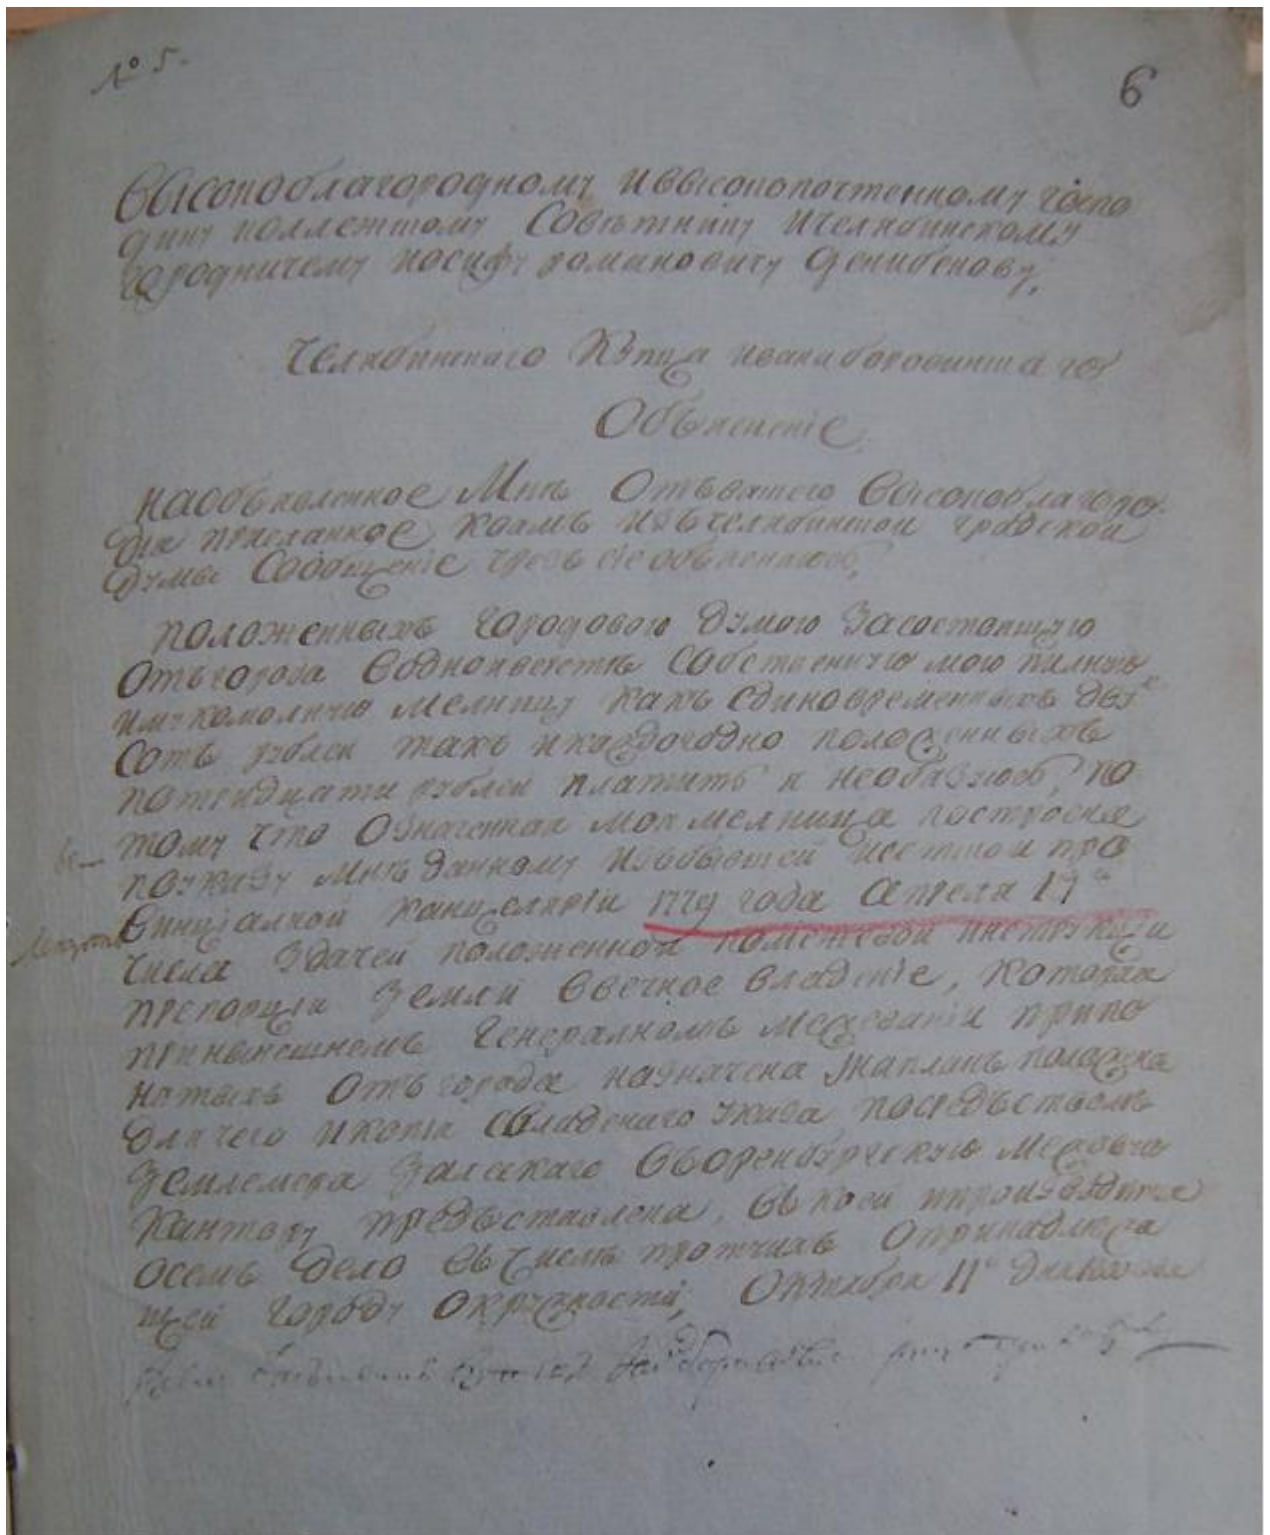 № 5.
6
Высокоблагородному ивысокопочтенному госпо
дину коллежскому Советнику ичелябинскому
городничему иосифу романовичу
челябинского Купца ивана боровинскаго
Объяснение
наобъявленное Мнѣ Отъвашего Высокоблагоро
дия присланное Квамъ изъчелябинской градской
думы Сообщение чрезъ сие объясняюсь,
положенныхъ городовою думою Засостоящую
Отъгорода Водной верстѣ Собственную мою пилную
имукомолную мелницу какъ единовременныхъ двух
Сотъ рублей такъ икаждогодно положенныхъ
потридцати рублей платить я необязуюсь, по
тому что Означенная моя мелница построена
поуказу Мнѣ данному избывшей исетской про
Винциалной канцелярии 1779 года апреля 17го
числа Здачей положенной помежевой инструкции
препорции Земли Ввечное владение, которая
принынешнемъ генералномъ межевании
Отъ города назначена наплань положена
длячего икопия Свладеннаго указа посредъствомъ
Землемера Вворенбургскую межевую
Кантору предъставлена, въ коей ипроизводится
осемъ дело въ числѣ протчихъ Опринадлежа
щей городу окружности, Октября 11го дня